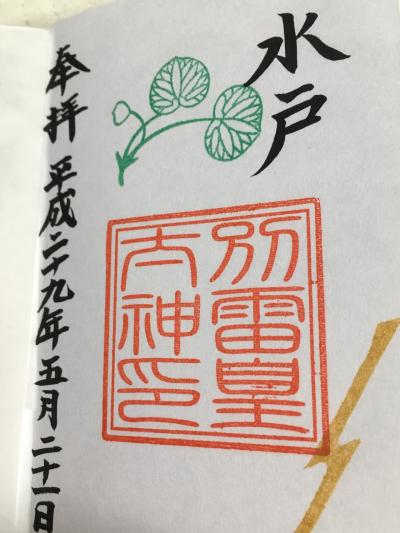 水戸
別雷皇
太神印
奉拝 平成二十九年五月二十一日